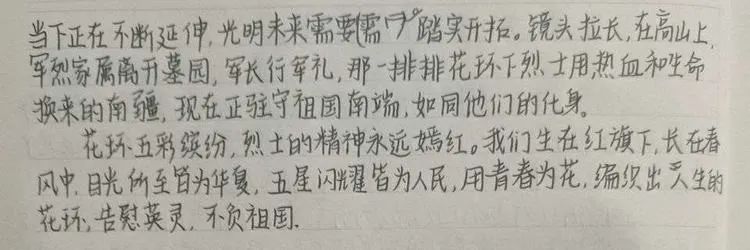 当下正在不断延伸,光明未来需要踏实开拓。镜头拉长,在高山上,
军烈家属离开墓园,军长行军礼,那一排排花环下烈士用热血和生命
换来的南疆,现在正驻守祖国南端,如同他们的化身。
花环五彩缤纷,烈士的精神永远嫣红。我们生在红旗下,长在春
风中,目光所至皆为华夏,五星闪耀皆为人民,用青春为花,编织出人生的
花环,告慰英灵,不负祖国.